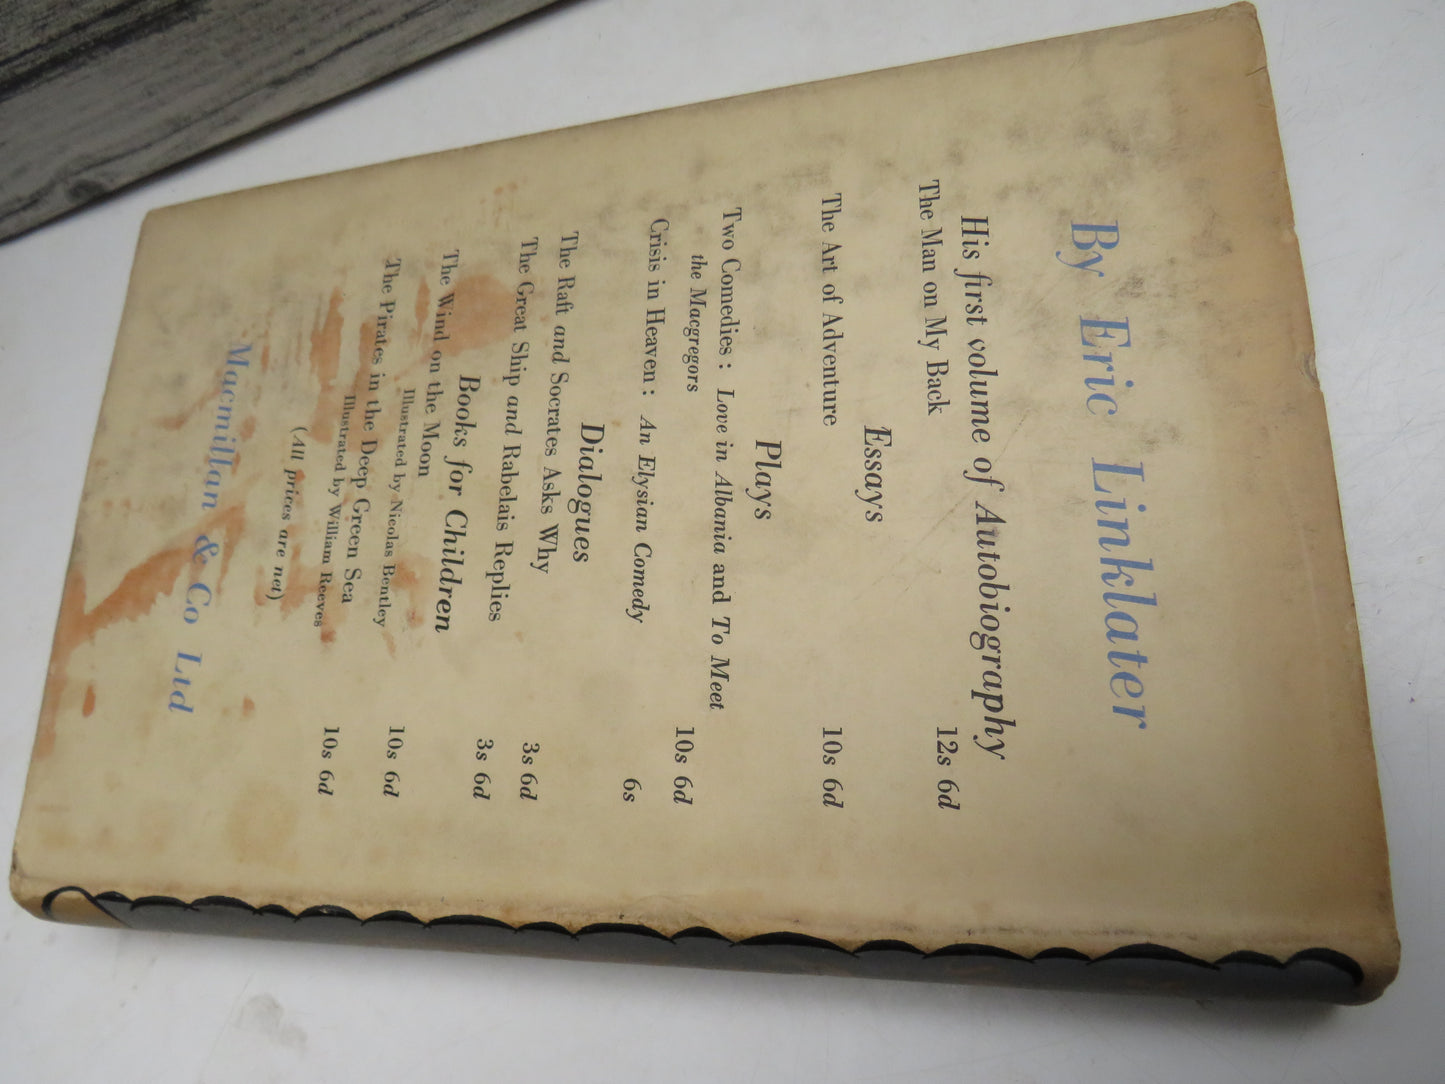 By Eric Linklater
His first volume of Autobiography
The Man on My Back 12s 6d
Essays
The Art of Adventure 10s 6d
Plays
Two Comedies : Love in Albania and To Meet
the Macgregors 10s 6d
Crisis in Heaven : An Elysian Comedy 6s
Dialogues
The Raft and Socrates Asks Why 3s 6d
The Great Ship and Rabelais Replies 3s 6d
Books for Children
The Wind on the Moon
Illustrated by Nicolas Bentley 10s 6d
The Pirates in the Deep Green Sea
Illustrated by William Reeves 10s 6d
(All prices are net)
Macmillan & Co Ltd